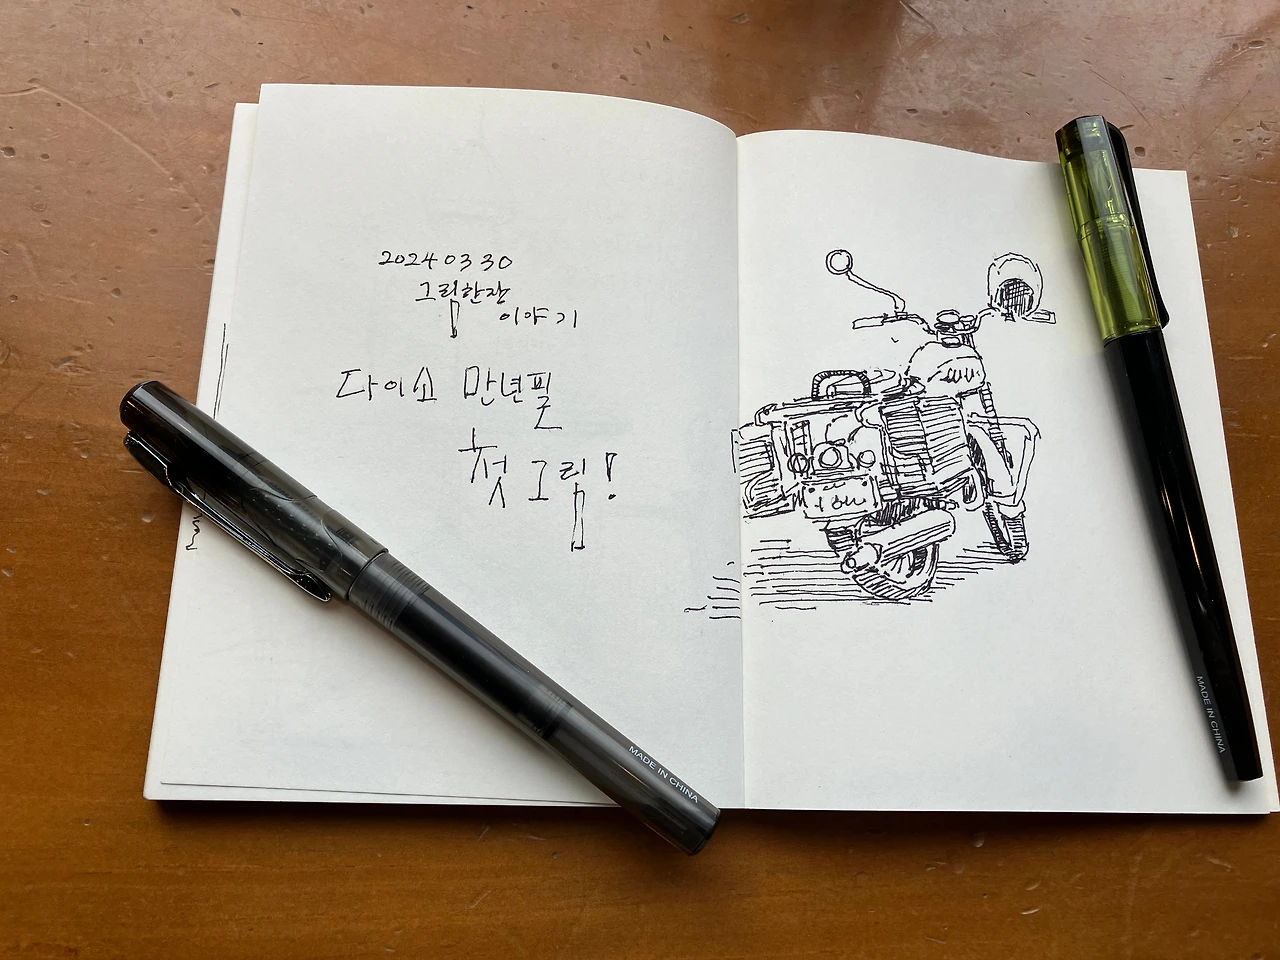 20240330
그림한장
이야기
다이소 만년필
첫 그림!
MADE IN CHINA
MADE IN CHINA